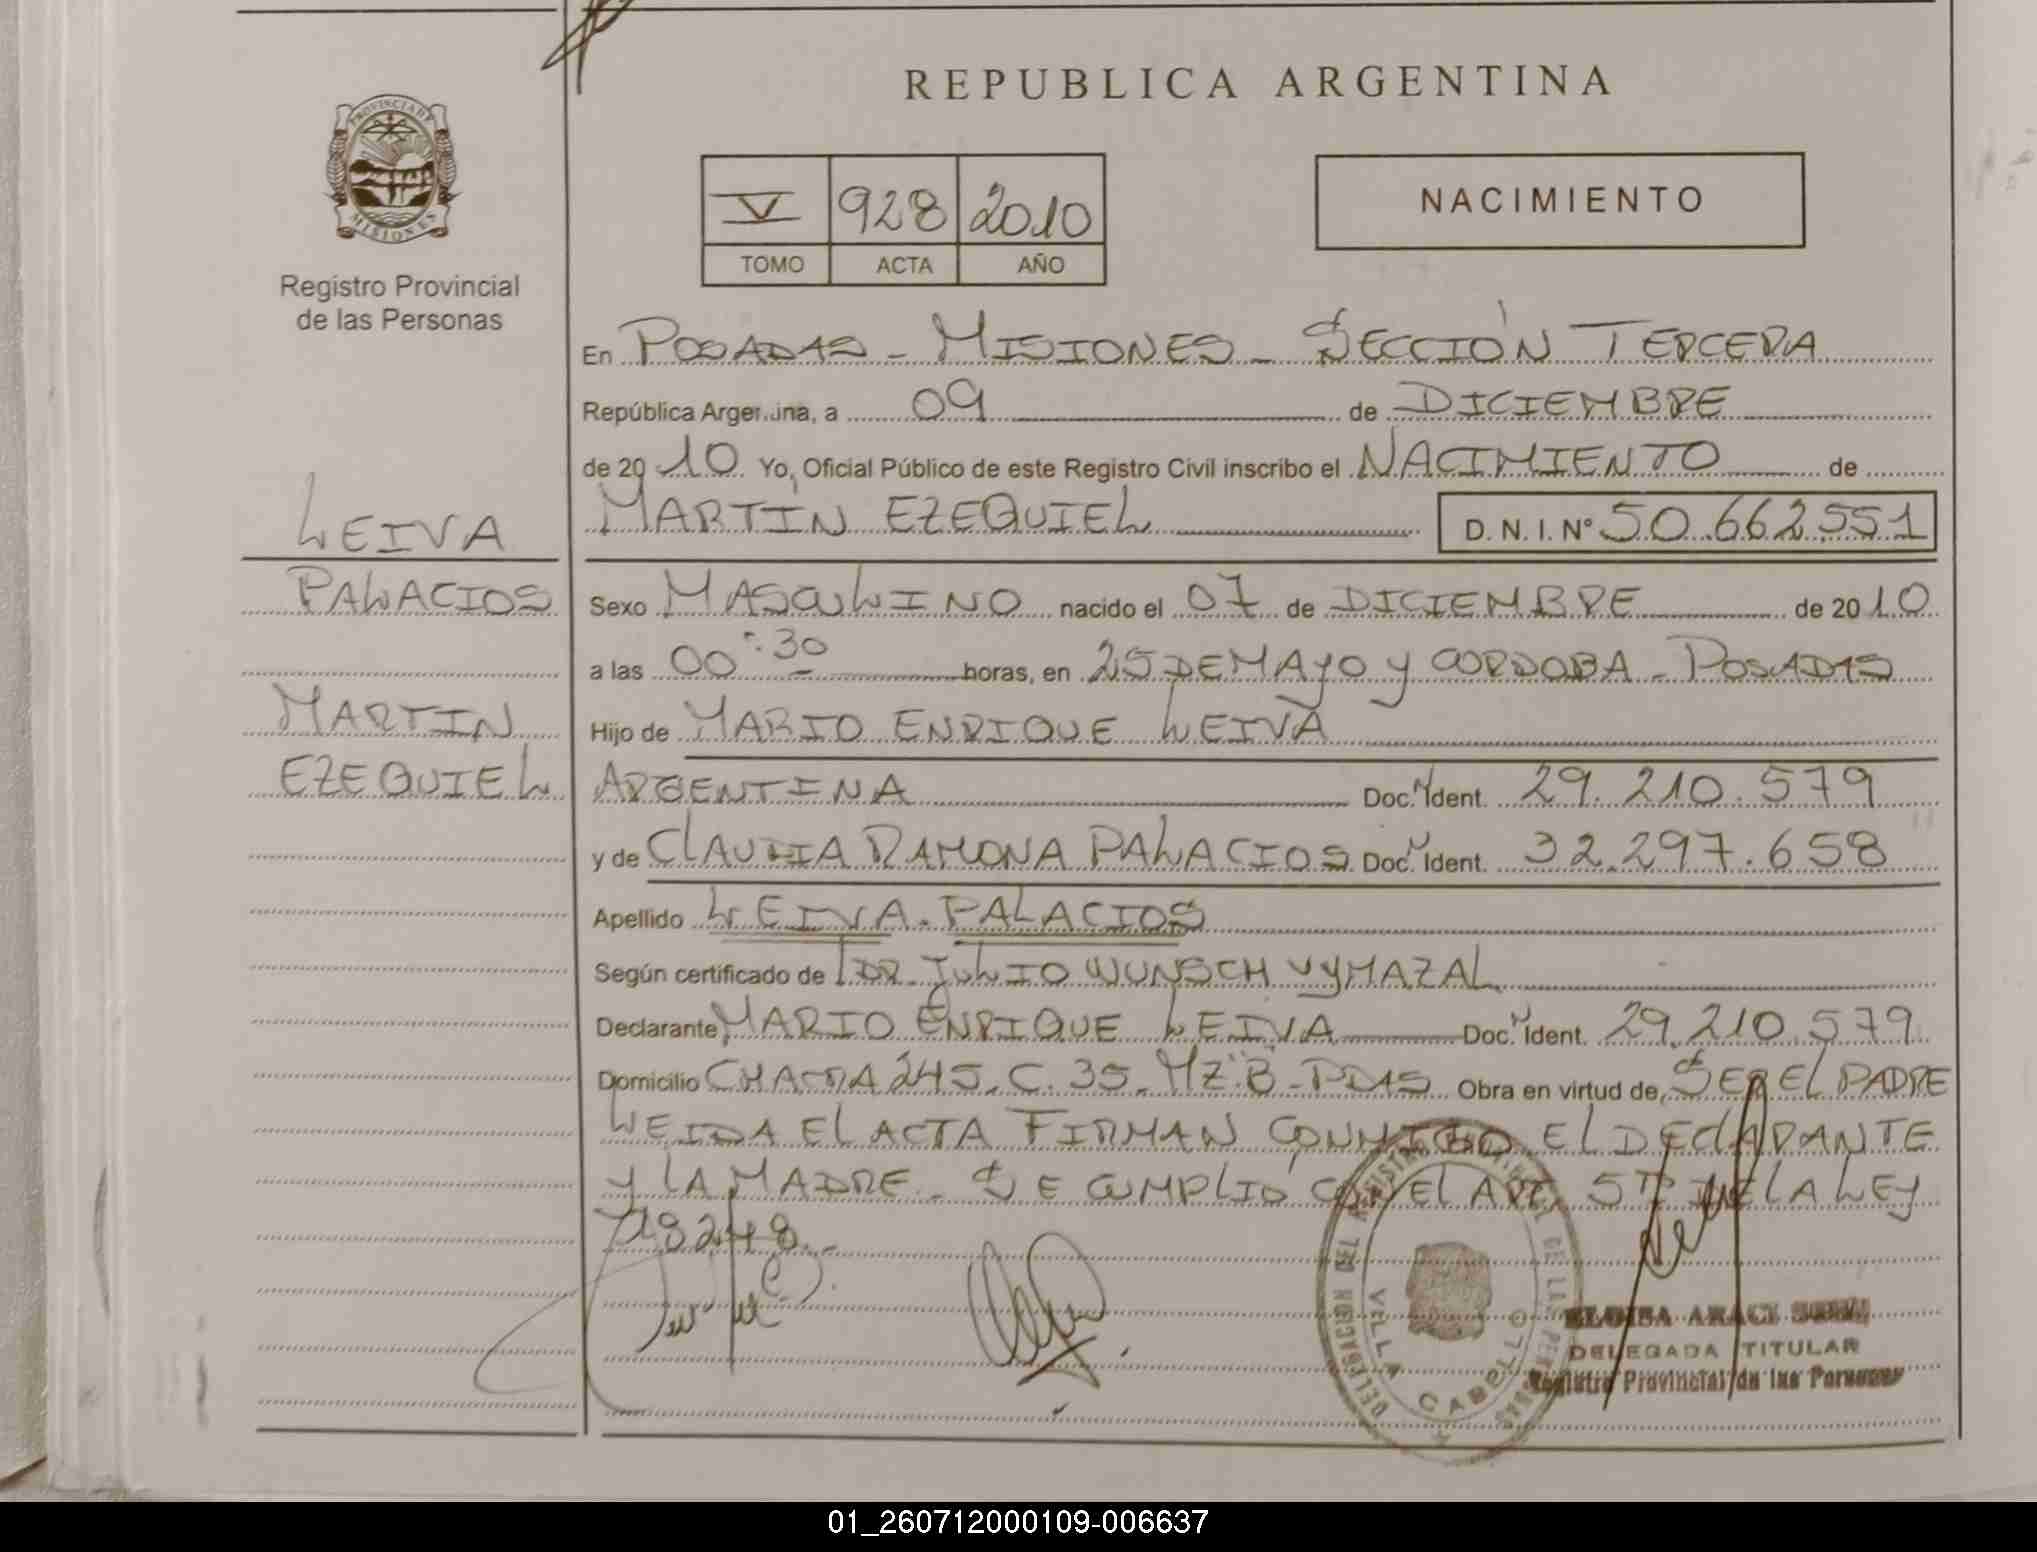 REPUBLICA ARGENTINA
PROVINCIA DE
MISIONES
V 928 2010
TOMO ACTA AÑO
NACIMIENTO
Registro Provincial
de las Personas
En POSADAS - MISIONES - SECCIÓN TERCERA
República Argentina, a 09 de DICIEMBRE
de 2010 Yo, Oficial Público de este Registro Civil inscribo el NACIMIENTO de
MARTÍN EZEQUIEL D. N. I. Nº 50.662.551
LEIVA
PALACIOS
MARTIN
EZEQUIEL
Sexo MASCULINO nacido el 07 de DICIEMBRE de 2010
a las 00:30 horas, en 25 DE MAYO Y CORDOBA - POSADAS
Hijo de MARIO ENRIQUE LEIVA
ARGENTINA Doc. Ident. 29.210.579
y de CLAUDIA RAMONA PALACIOS Doc. Ident. 32.297.658
Apellido LEIVA - PALACIOS
Según certificado de DR. JULIO WUNSCH VYMAZAL
Declarante MARIO ENRIQUE LEIVA Doc. Ident. 29.210.579
Domicilio CHACRA 245. C. 35. MZ "B" - PDAS Obra en virtud de SER EL PADRE
LEIDA EL ACTA FIRMAN CONMIGO EL DECLARANTE
Y LA MADRE - SE CUMPLIÓ CON EL ART 5TO DE LA LEY
18248.-
DELEGACION DEL REGISTRO PROVINCIAL DE LAS PERSONAS
VILLA CABELLO
ELOISA ARACI
DELEGADA TITULAR
Registro Provincial de las Personas
01_260712000109-006637